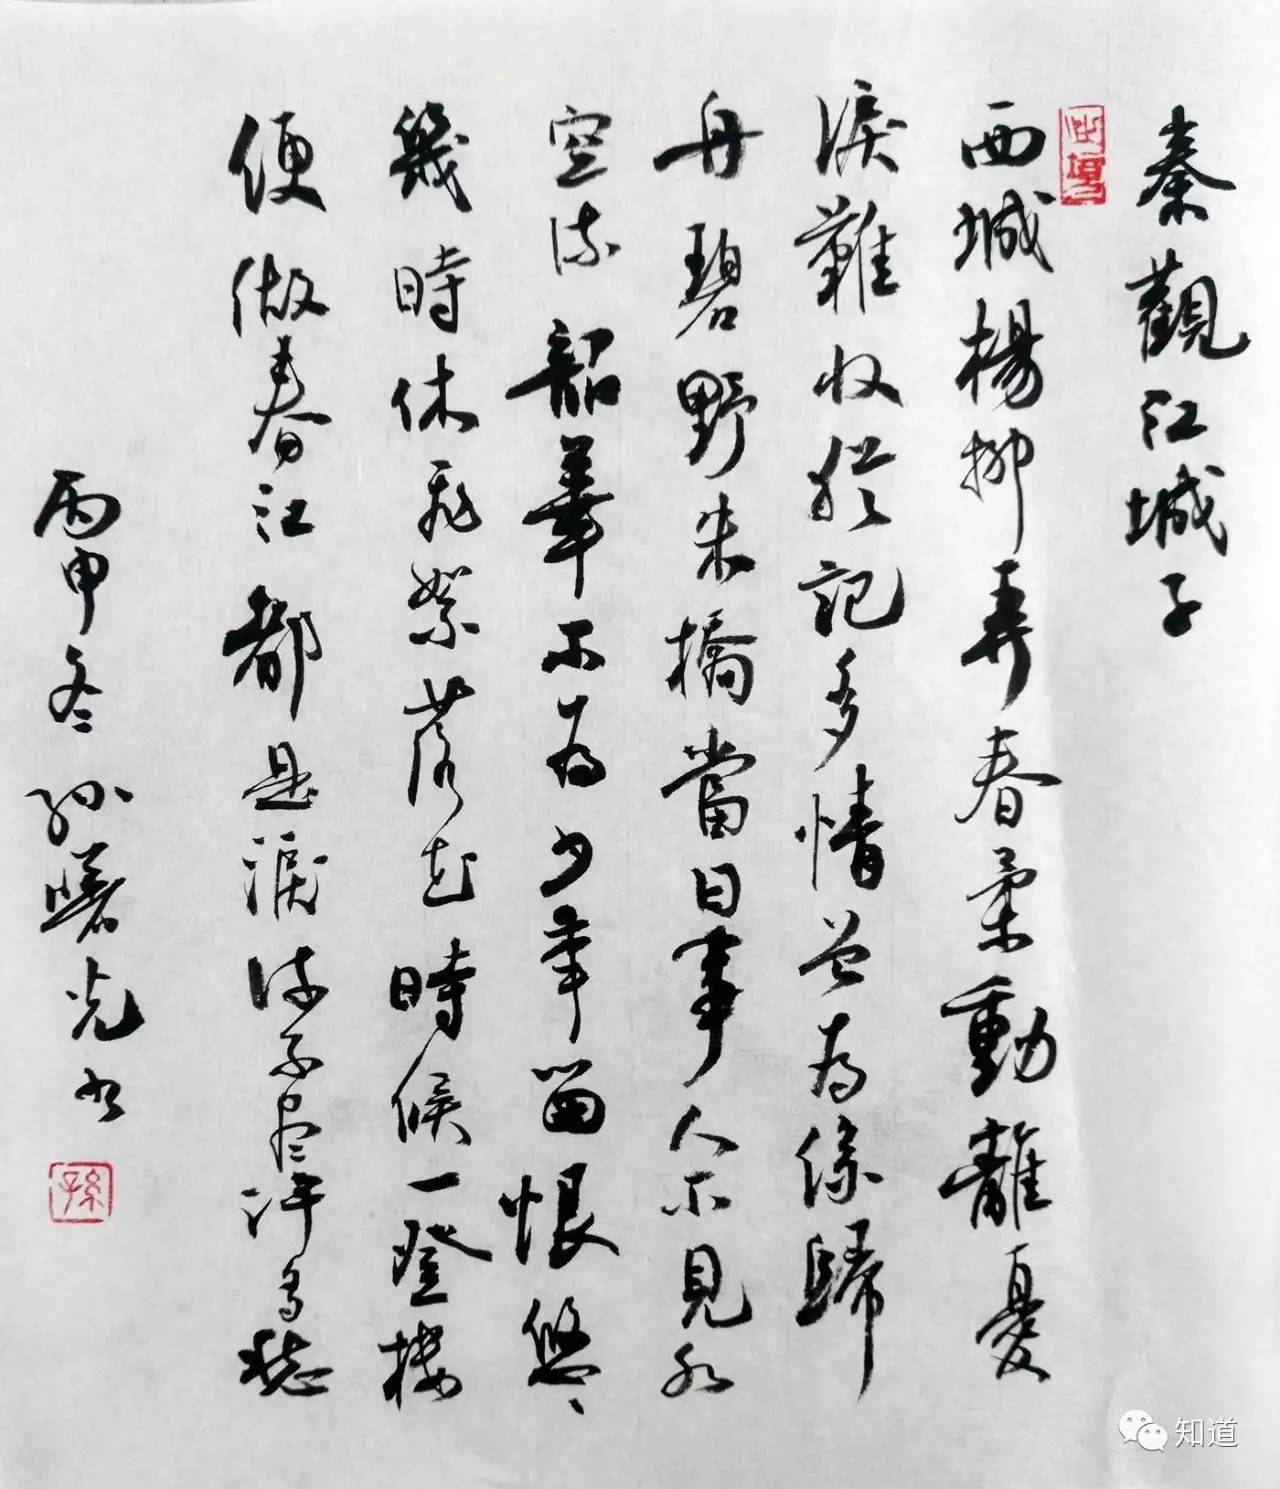 秦觀江城子
西城楊柳弄春柔動離憂
淚難收猶記多情曾為係歸
舟碧野朱橋當日事人不見水
空流韶華不為少年留恨悠〻
幾時休飛絮落花時候一登樓
便做春江都是淚流不盡許多愁
丙申冬孫曙光书
孫
知道